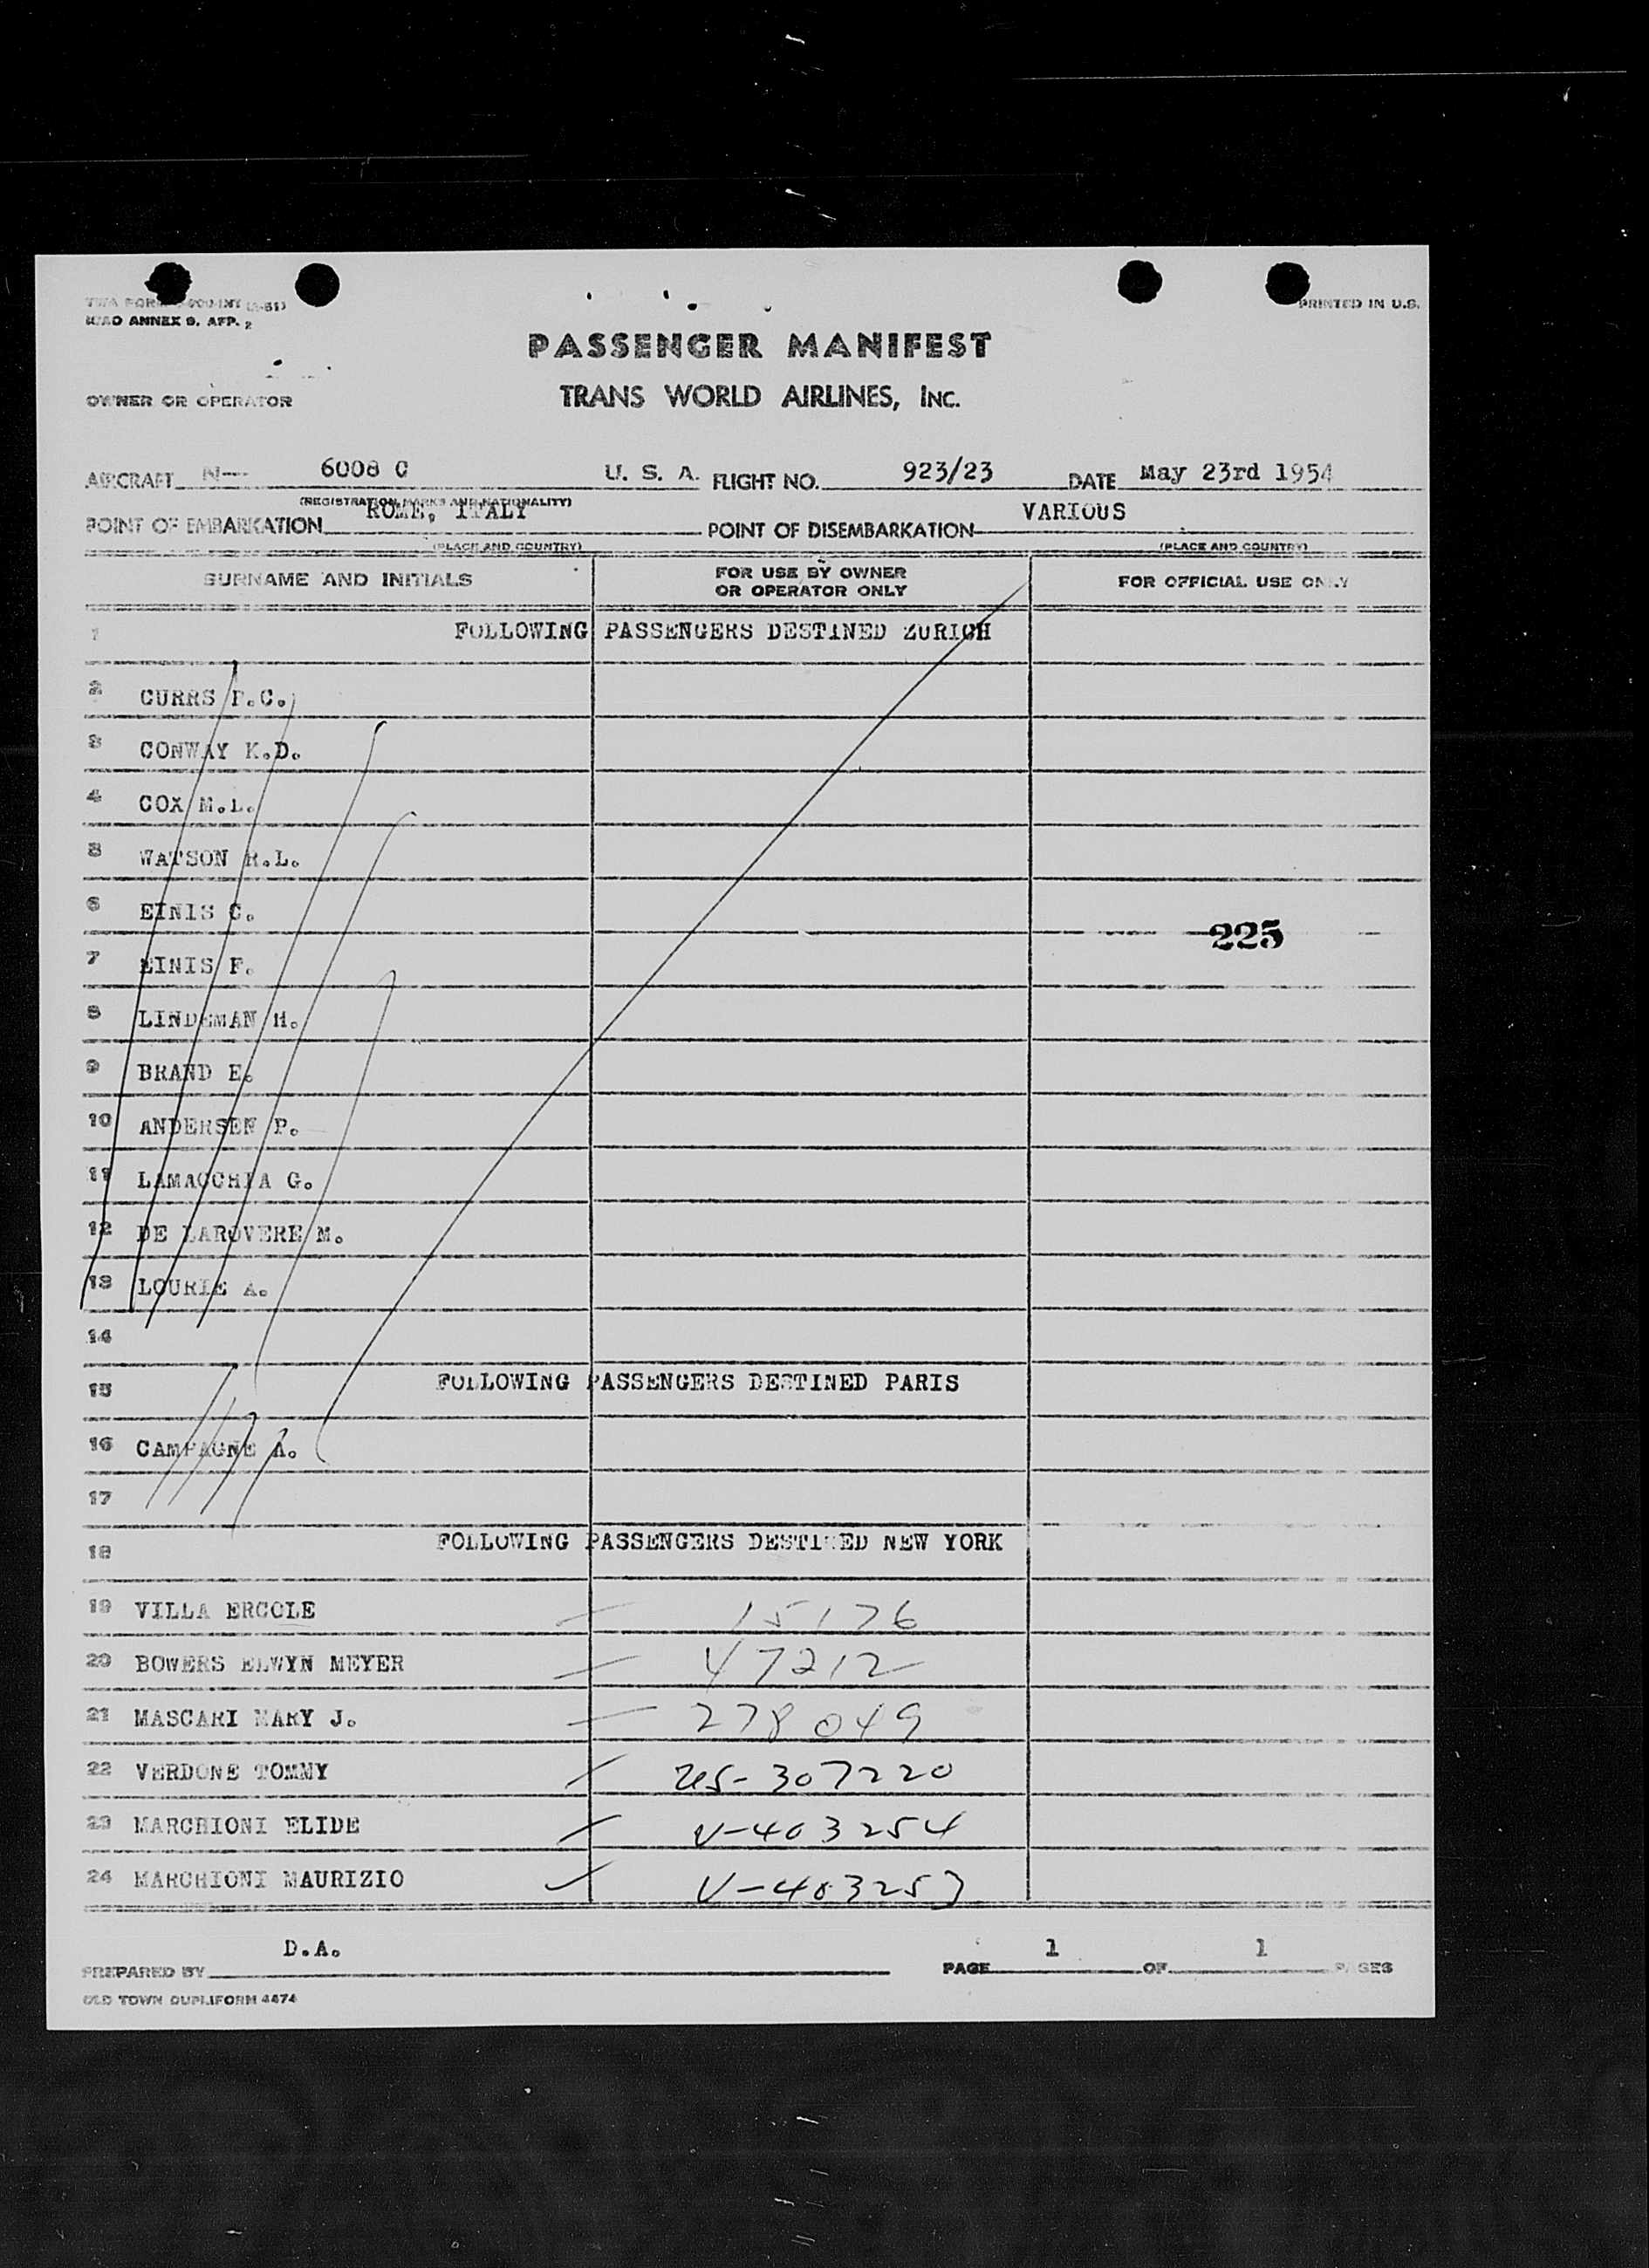 ICAO ANNEX 9, APP. 2
PRINTED IN U.S.
PASSENGER MANIFEST
OWNER OR OPERATOR
TRANS WORLD AIRLINES, INC.
AIRCRAFT N-- 6008 C U. S. A. FLIGHT NO. 923/23 DATE May 23rd 1954
(REGISTRATION MARKS AND NATIONALITY)
POINT OF EMBARKATION ROME, ITALY POINT OF DISEMBARKATION VARIOUS
(PLACE AND COUNTRY) (PLACE AND COUNTRY)
SURNAME AND INITIALS FOR USE BY OWNER OR OPERATOR ONLY FOR OFFICIAL USE ONLY
1 FOLLOWING PASSENGERS DESTINED ZURICH
2 CURRS P.C.
3 CONWAY K.D.
4 COX M.L.
5 WATSON R.L.
6 EINIS C.
225
7 EINIS F.
8 LINDEMAN H.
9 BRAND E.
10 ANDERSEN P.
11 LAMACCHIA G.
12 DE LAROVERE M.
13 LOURIE A.
14
15 FOLLOWING PASSENGERS DESTINED PARIS
16 CAMPAGNE A.
17
18 FOLLOWING PASSENGERS DESTINED NEW YORK
19 VILLA ERCOLE 15176
20 BOWERS ELWYN MEYER 47212
21 MASCARI MARY J. 278049
22 VERDONE TOMMY 307220
23 MARCHIONI ELIDE V-403254
24 MARCHIONI MAURIZIO V-403253
D.A.
PREPARED BY PAGE 1 OF 1 PAGES
OLD TOWN DUPLIFORM 4474